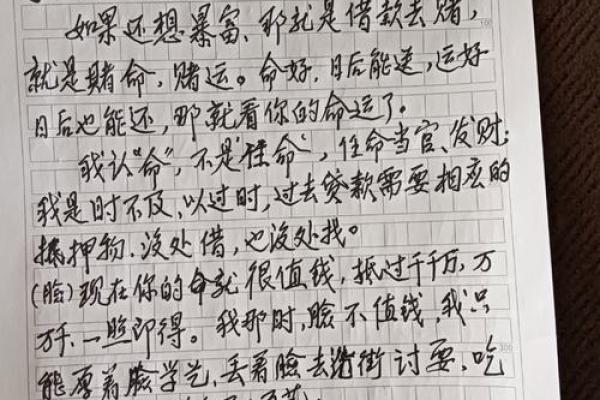 如果还想暴富、那就是借款去赌，
就是赌命，赌运。命好，日后能还，运好
日后也能还，那就看你的命运了。
我认“命”，不是“任命”，任命当官、发财；
我是时不及，以过时，过去贷款需要相应的
抵押物，没处借，也没处找。
(脸)现在你的命就很值钱，抵过千千万，万
万千、一照即得。我那时，脸不值钱，我只
能厚着脸学艺，丢着脸去街讨要，吃
100
300